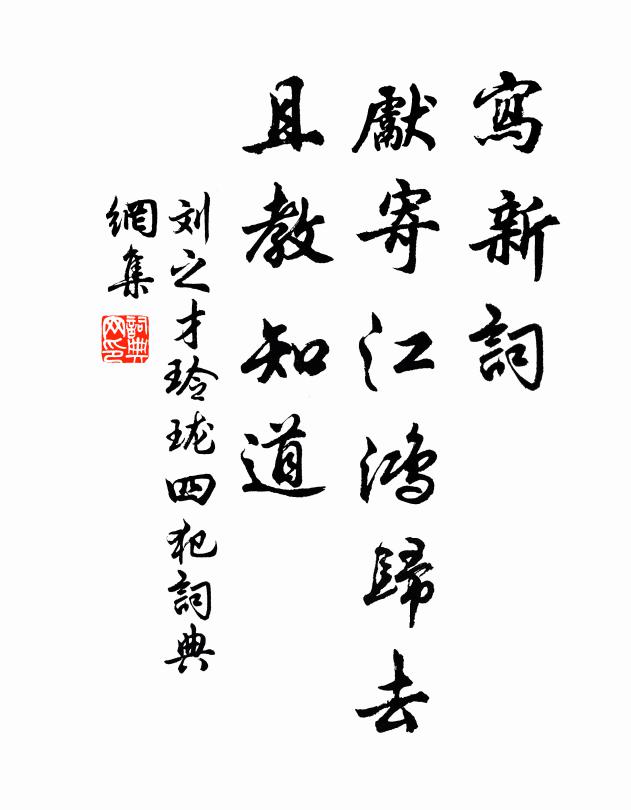 寫新詞
獻寄江鴻歸去
且教知道
刘之才玲珑四犯詞典
網集
詞典网印